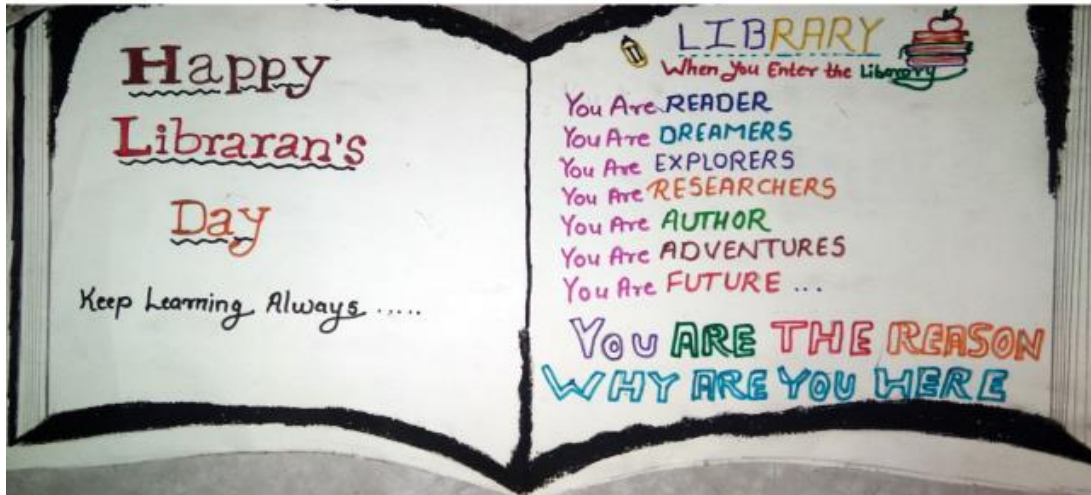 Happy
Libraran's
Day
Keep Learning Always .....
LIBRARY
When You Enter the Library
You Are READER
You Are DREAMERS
You Are EXPLORERS
You Are RESEARCHERS
You Are AUTHOR
You Are ADVENTURES
You Are FUTURE ...
YOU ARE THE REASON
WHY ARE YOU HERE